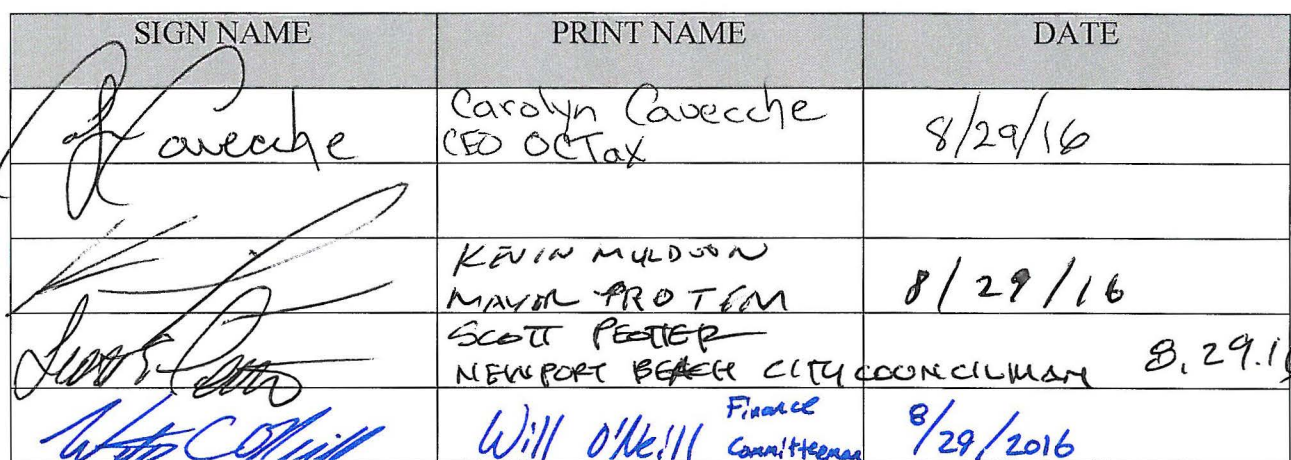 SIGN NAME PRINT NAME DATE
Cavecche Carolyn Cavecche 8/29/16
CEO OCTax
KEVIN MULDOON
MAYOR PRO TEM 8/29/16
SCOTT PEOTTER
NEWPORT BEACH CITY COUNCILMAN 8.29.16
Will O'Neill Finance Committeeman 8/29/2016